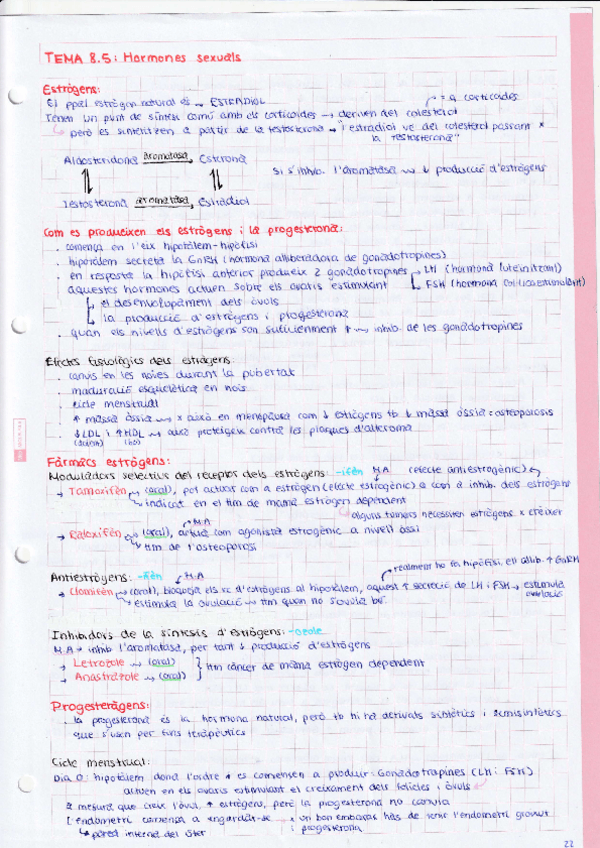 TEMA 8.5: Hormones sexuals
Estrògens:
El ppal estrògen natural és → ESTRADIOL
= q corticoides
Tenen un punt de síntesi comú amb els corticoides → deriven del colesterol
però es sintetitzen a partir de la testosterona → "l'estradiol ve del colesterol passant x
la testosterona"
aromatasa Estrona
Testosterona aromatasa Estradiol
Si s'inhib. l'aromatasa → ↓ producció d'estrògens
Com es produeixen els estrògens i la progesterona:
· comença en l'eix hipotàlem-hipòfisi
· hipotàlem secreta la GnRH (hormona alliberadora de gonadotropines)
· en resposta la hipòfisi anterior produeix 2 gonadotropines → LH (hormona luteinitzant)
· aquestes hormones actuen sobre els ovaris estimulant
FSH (hormona fol·liculoestimulant)
↳ el desenvolupament dels òvuls
↳ la producció d'estrògens i progesterona
· quan els nivells d'estrògens són suficienment ↑ → inhib. de les gonadotropines
Efectes fisiològics dels estrògens
· canvis en les noies durant la pubertat
· maduració esquelètica en nois
· cicle menstrual
· ↑ massa òssia → x això en menopausa com ↓ estrògens tb ↓ massa òssia: osteoporosis
· ↓ LDL i ↑ HDL → això protegeix contra les plaques d'ateroma
Fàrmacs estrògens:
Moduladors selectius del receptor dels estrògens -ifèn M.A (efecte antiestrogènic)
→ Tamoxifèn (oral), pot actuar com a estrògen (efecte estrogènic) o com a inhib. dels estrògens
indicat en el ttm de mama estrogen dependent
alguns tumors necessiten estrògens x créixer
M.A
→ Raloxifèn (oral), actua com agonista estrogènic a nivell ossi
ttm de l'osteoporosi
Antiestrògens: -ifèn M.A
→ realment ho fa hipòfisi, ell allib. ↑ GnRH
→ Clomifèn (oral), bloqueja els rc d'estrògens al hipotàlem, aquest ↑ secreció de LH i FSH → estimula
ovulació
estimula la ovulació → ttm quan no s'ovula bé.
Inhibidors de la síntesis d'estrògens: -ozole
M.A → inhib l'aromatasa, per tant ↓ producció d'estrògens
→ Letrozole → (oral)
→ Anastrozole → (oral)
ttm càncer de mama estrogen dependent
Progesteràgens:
· la progesterona és la hormona natural, però tb hi ha derivats sintètics i semisintètics
que s'usen per fins terapèutics
Cicle menstrual:
Dia 0: hipotàlem dona l'ordre es comencen a produir: Gonadotropines (LH i FSH)
actuen en els ovaris estimulant el creixament dels fol·licles i òvuls
a mesura que creix l'òvul, ↑ estrògens, però la progesterona no canvia
l'endometri comença a engordar-se → x un bon embaràs has de tenir l'endometri gruixut
↳ paret interna del úter
i progesterona
22